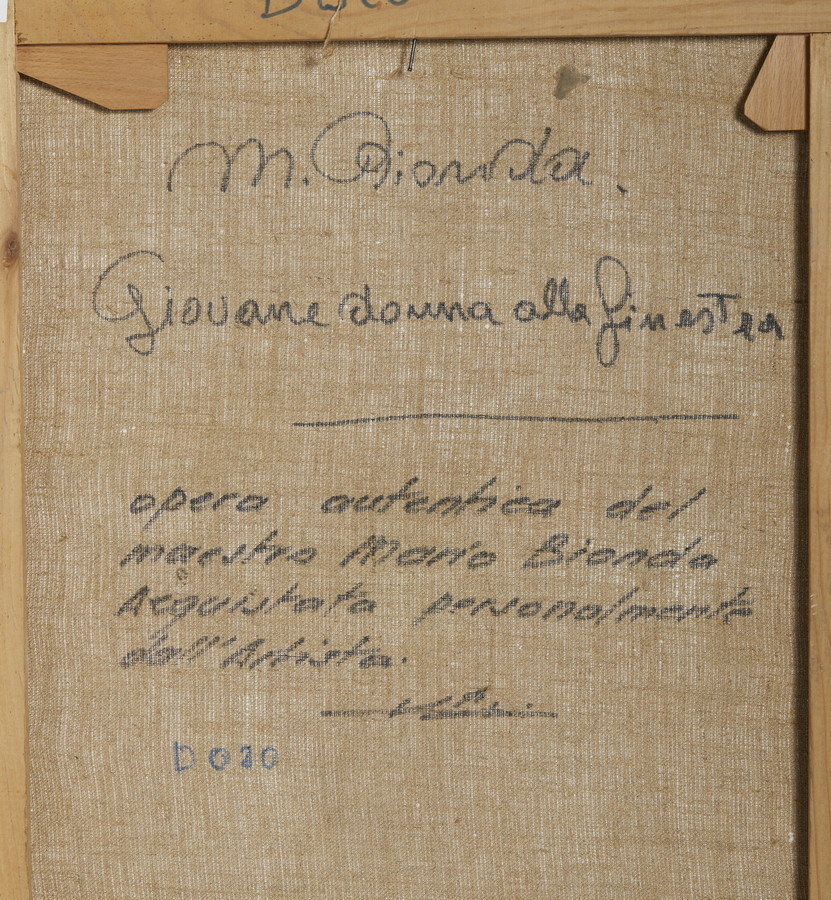 M. Bionda.
Giovane donna alla finestra
opera autentica del
maestro Mario Bionda
Acquistata personalmente
dall'Artista.